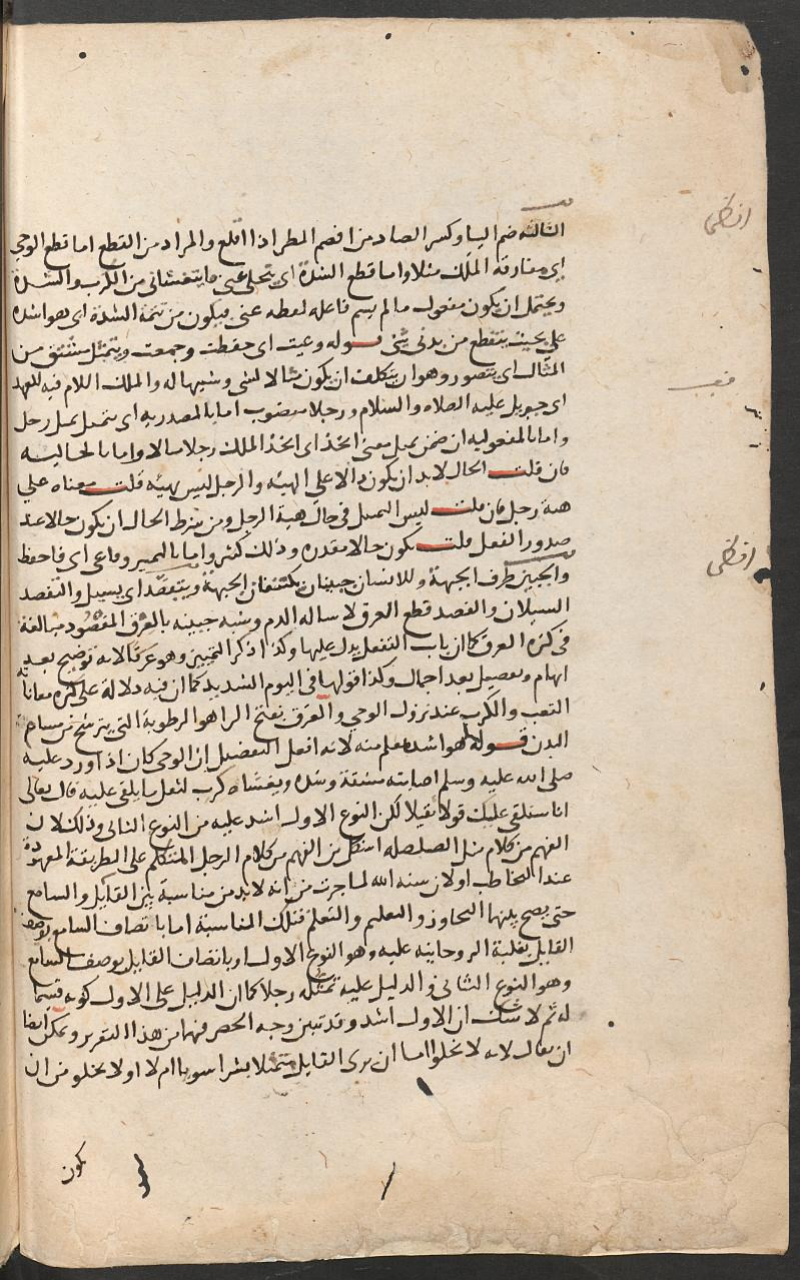 الثالثه ضم اليا وكسر الصاد من افصم المطر اذا اقلع والمراد من القطع اما قطع الوحي
اي مفارقة الملك مثلا واما قطع الشدة اي يتجلى عني ما يتغشاني من الكرب والشدة
ويحتمل ان يكون مفعول ما لم يسم فاعله لفظه عني فيكون من تتمة الشدة اي وهو اشده
علي بحيث ينقطع من بدني شي قوله وعيت اي حفظت وجمعت ويتمثل مشتق من
المثال اي يتصور وهو ان يتكلف ان يكون مثالا لشي وشبيها له والملك اللام فيه للعهد
اي جبريل عليه الصلاه والسلام ورجلا منصوب اما بالمصدريه اي يتمثل تمثل رجل
واما بالمفعوليه ان ضمن يتمثل معنى اتخذ اي اتخذ الملك رجلا مثالا واما بالحاليه
فان قلت الحال لابد ان يكون دالا على الهيئه والرجل ليس بهيئه قلت معناه علي
هيئة رجل فان قلت ليس التمثل في حال هيئة الرجل ومن شرط الحال ان يكون حالا عند
صدور الفعل قلت يكون حالا مقدره وذلك كثير واما بالتمييز وفاعي اي فاحفظ
والجبين طرف الجبهة وللانسان جبينان يكتنفان الجبهة ويتفصد اي يسيل والتفصد
السيلان والفصد قطع العرق لاسالة الدم وشبه جبينه بالعرق المفصود مبالغة
في كثرة العرق كما ان باب التفعل يدل عليها وكذا ذكر التمييز وهو عرقا لانه توضيح بعد
ابهام وتفصيل بعد اجمال وكذا قولها في اليوم الشديد كما ان فيه دلالة على كثرة معاناة
التعب والكرب عند نزول الوحي والعرق بفتح الرا هو الرطوبة التي يترشح من مسام
البدن قوله وهو اشده يعلم منه لانه افعل التفضيل ان الوحي كان اذا ورد عليه
صلى الله عليه وسلم اصابته مشقة وشدة ويغشاه كرب لثقل ما يلقى عليه قال تعالى
انا سنلقي عليك قولا ثقيلا لكن النوع الاول اشد عليه من النوع الثاني وذلك لان
الفهم من كلام مثل الصلصله اشكل من الفهم من كلام الرجل المتكلم على الطريقة المعهودة
عند التخاطب او لان سنه الله لما جرت من انه لابد من مناسبة بين القايل والسامع
حتى يصح بينهما التحاور والتعليم والتعلم فتلك المناسبة اما باتصاف السامع بوصف
القايل بغلبة الروحانيه عليه وهو النوع الاول او باتصاف القايل بوصف السامع
وهو النوع الثاني والدليل عليه تمثله رجلا كما ان الدليل على الاول كونه قسيما
له ثم لا شك ان الاول اشد وقد تبين وجه الحصر فيهما من هذا التقرير ويمكن ايضا
ان يقال لانه لا يخلوا اما ان يرى القايل متمثلا بشرا سويا ام لا او لا يخلو من ان
يكون